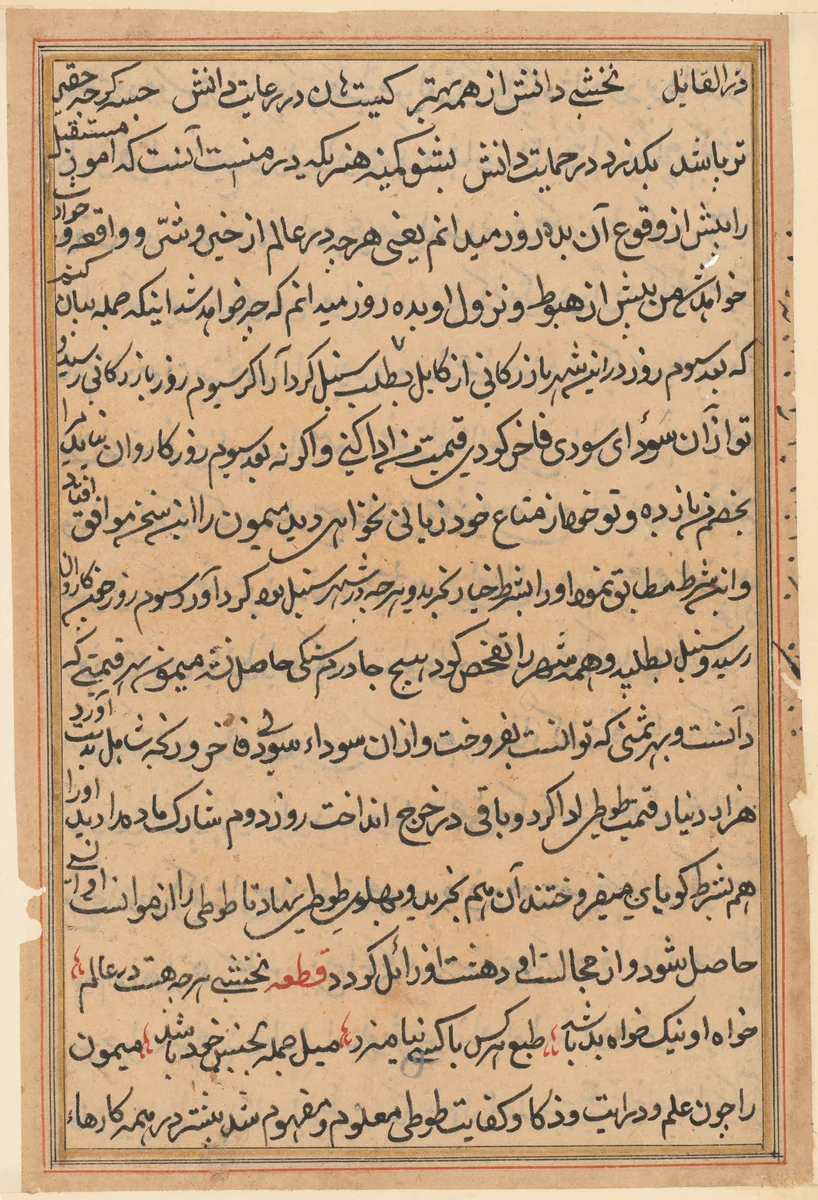 درّ القایل نخشبی دانش از همه بهتر کیست هان در رعایت دانش جسه کرچه حقیر
تر باشد بکذرد در حمایت دانش بشنو کمینه هنریکه در منست آنست که امور مستقبل
را پیش از وقوع آن بده روز میدانم یعنی هرچه در عالم از خیر و شرّ و واقعه و حوادث
خواهد شد من پیش از هبوط و نزول او بده روز میدانم که چه خواهد شد اینکه جمله بیان کنم
که بعد سیوم روز در این شهر بازرکانی از کابل بطلب سنبل کرد آرا کر سیوم روز بازرکانی رسید و
تو از آن سودٔای سودی فاخر کودی قیمت من ادا کنی و اکر نه بعد سیوم روز کاروان نیاید مرا
بخصم من باز ده و تو خود از متاع خود زیانی نخواهی دید میمون را این سخن موافق افتاد
و این شرط مطابق نمود او را بشرط خیار بخرید و هرچه در شهر سنبل بود کرد آورد سوم روز چون کاروان
رسید و سنبل بطلبید و همه شهر را تفحص کود هیچ جا درم سنکی حاصل نشد میمون بهر قیمتی که
دانست و بهر ثمنی که توانست بفروخت و از ان سوداء سودی فاخر و ربحه شامل بدست آورد
هزار دینار قیمت طوطی ادا کرد و باقی در خرج انداخت روز دوم شارک ماده را دید او را
هم بشرط کویایی میفروختند آن هم بخرید و بپهلوی طوطی نهاد تا طوطی را از موانست او انسی
حاصل شود و از مجالست او دهشت او زائل کودد قطعه نخشبی هرچه هست در عالم
خواه او نیک خواه بد باشد طبع هر کس با کسی نیامیزد میل جمله بجنس خود باشد میمون
را چون علم و درایت و ذکا و کفایت طوطی معلوم و مفهوم شد بیشتر در همه کارهاء